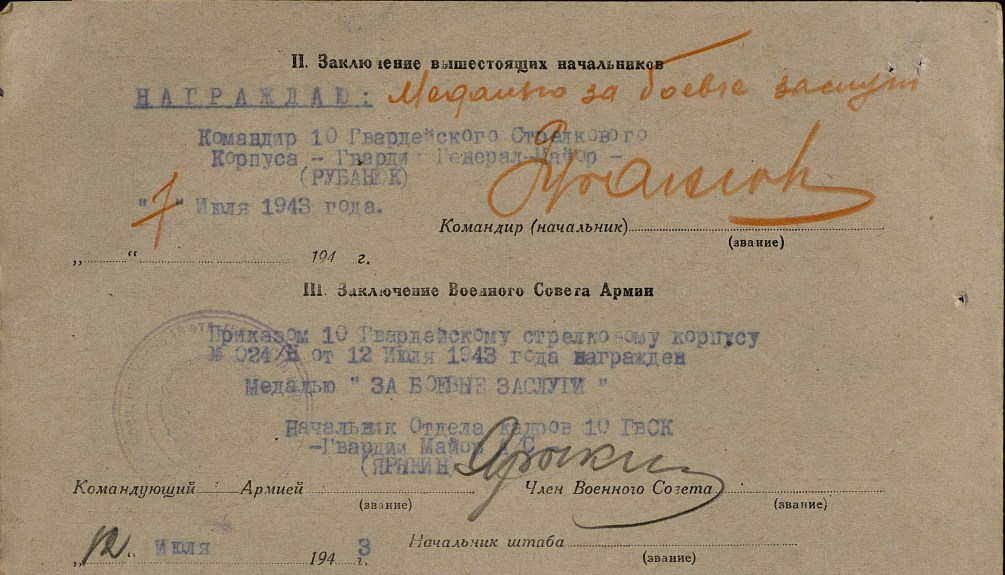 II. Заключение вышестоящих начальников
НАГРАЖДАЮ: Медалью за боевые заслуги
Командир 10 Гвардейского Стрелкового
Корпуса - Гвардии Генерал-Майор -
(РУБАНЮК)
"7" Июля 1943 года.
Командир (начальник)
(звание)
„ “ 194 г.
III. Заключение Военного Совета Армии
Приказом 10 Гвардейскому стрелковому корпусу
№ 024/Н от 12 Июля 1943 года награжден
Медалью " ЗА БОЕВЫЕ ЗАСЛУГИ "
Начальник Отдела кадров 10 ГвСК
-Гвардии Майор А/С
(ЯРЫКИН)
Командующий Армией Член Военного Совета
(звание) (звание)
„12“ Июля 1943 г. Начальник штаба
(звание)